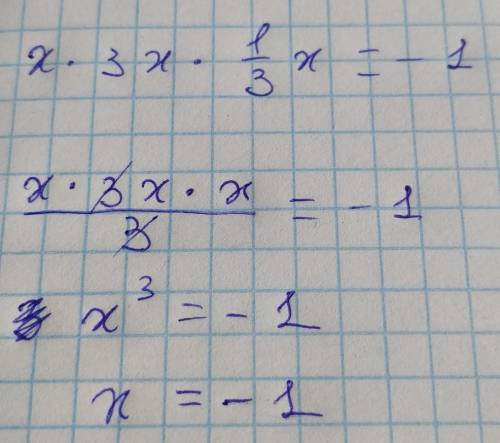 x · 3x · 1/3 x = - 1
x · 3x · x / 3 = - 1
x³ = - 1
x = - 1